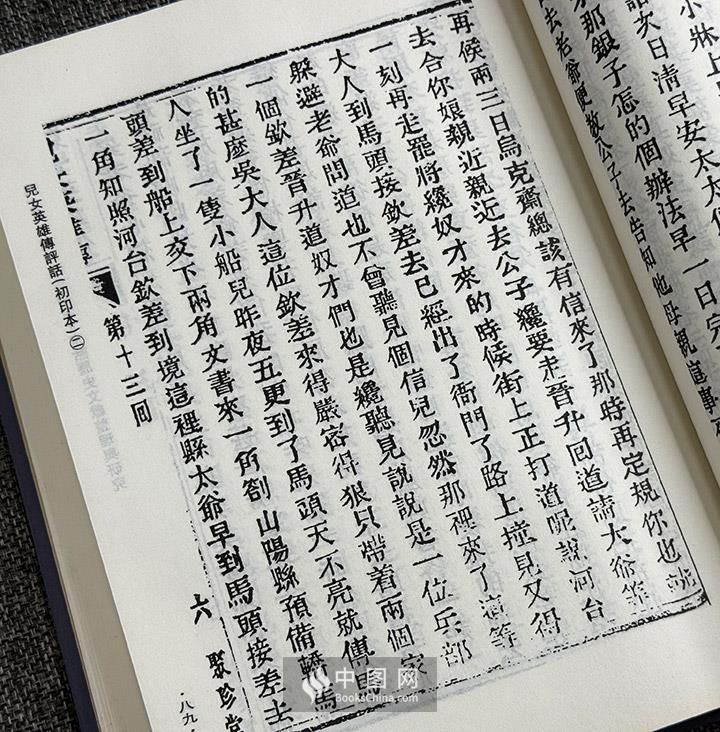 小牀上
話次日清早安太太
那銀子怎的個辦法早一日
去老爺便教公子去告知他母親這事
再候兩三日烏克齋總該有信來了那時再定規你也就
去合你娘親近親近去公子纔要走晉升回道請大爺等
一刻再走罷將纔奴才來的時候街上正打道呢說河台
大人到馬頭接欽差去已經出了衙門了路上撞見又得
躲避老爺問道也不曾聽見個信兒忽然那裡來了這等
一個欽差晉升道奴才們也是纔聽見說說是一位兵部
的甚麽吳大人這位欽差來得嚴密得狠只帶着兩個家
人坐了一隻小船兒昨夜五更到了馬頭天不亮就傳馬
頭差到船上交下兩角文書來一角劄山陽縣預備轎馬
一角知照河台欽差到境這裡縣太爺早到馬頭接差去
第十三回
六
聚珍堂
兒女英雄傳評話(初印本)㈡
·八九
中图网
BooksChina.com